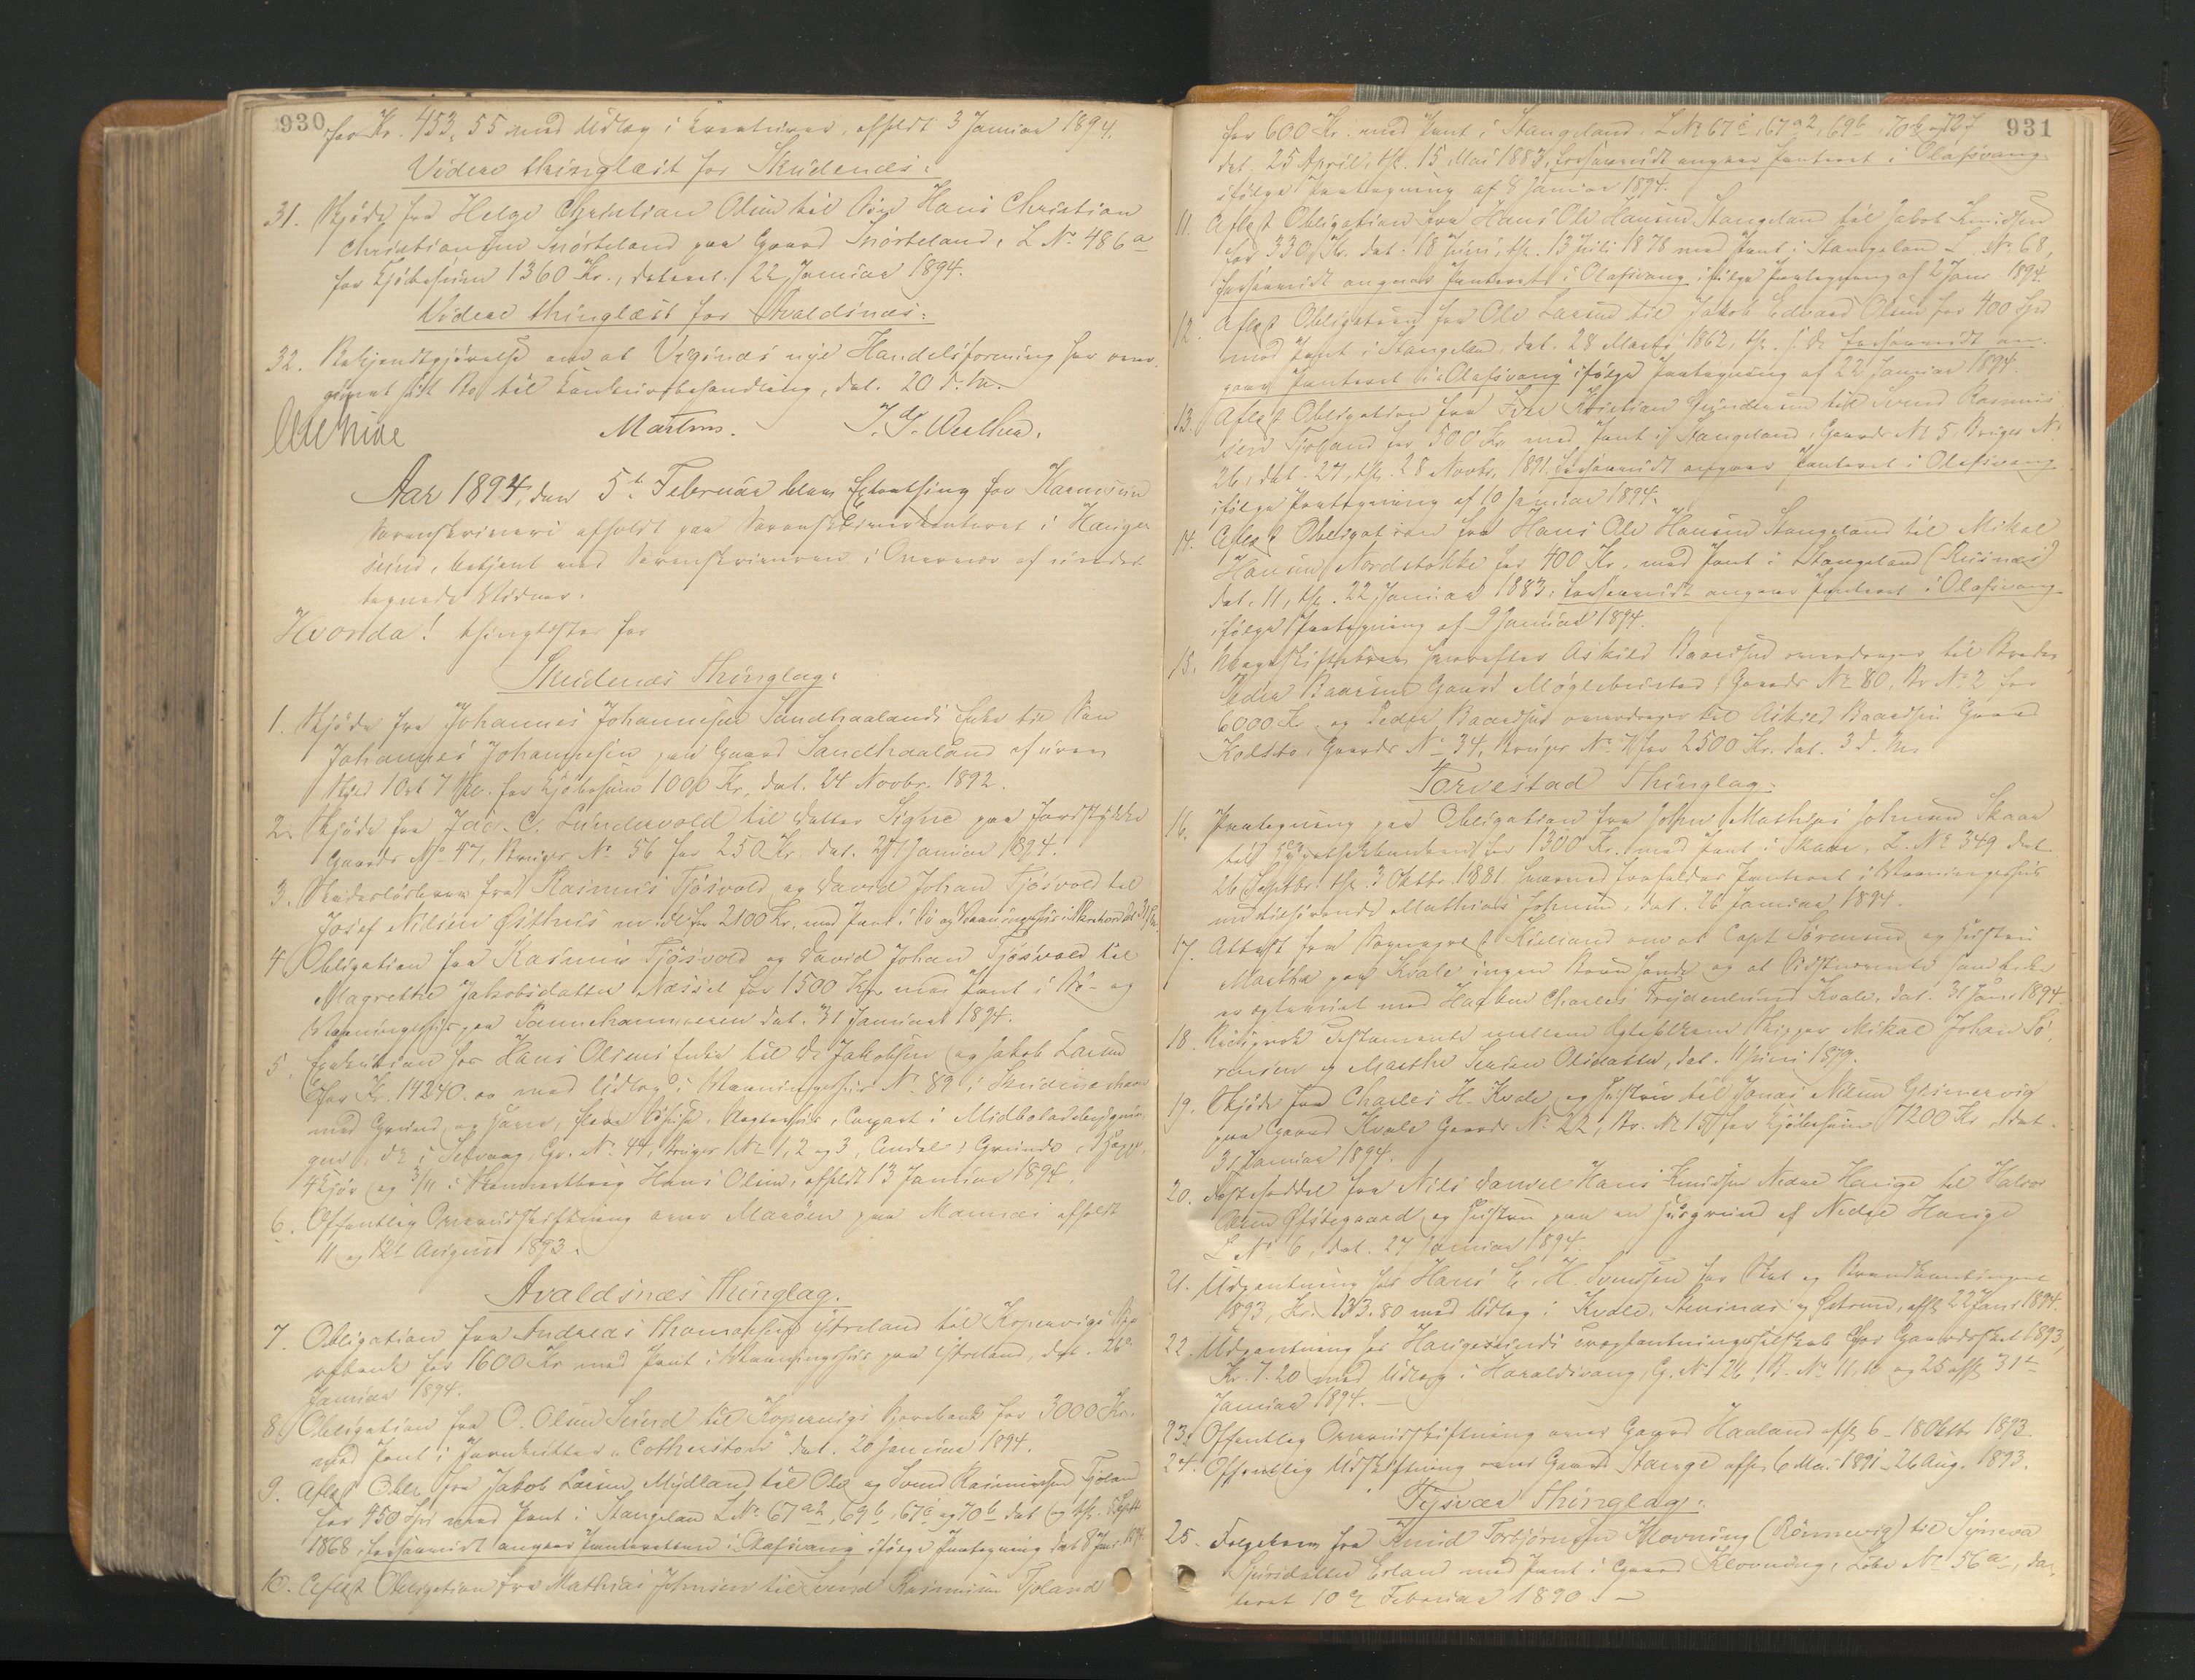 930
for Kr. 453,55 med Udlæg i Creaturer, afholdt 3 Januar 1894.
Videre thinglæst for Skudenæs:
31. Skjøde fra Helge Christian Olsen til Hans Christian
Christiansen Snørteland paa Gaard Snørteland, L No 486a
for Kjøbesum 1360 Kr., dateret 22 Januar 1894.
Videre thinglæst for Avaldsnæs:
32. Bekjendtgjørelse om at Vigsnæs nye Handelsforening har over-
givet sit Bo til Konkursbehandling, dat. 20 d. M.
Martens.
Aar 1894, den 5te Februar blev Extrathing for Karmsund
Sorenskriveri afholdt paa Sorenskriverkontoret i Hauge-
sund, betjent med Sorenskriveren i Overvær af under-
tegnede Vidner.
Hvorda! thinglystes for
Skudenæs Thinglag:
1. Skjøde fra Johannes Johannesen Sandhaalands Enke til Søn
Johannes Johannesen paa Gaard Sandhaaland af
Skyld 1 Ort 7 Skil. for Kjøbesum 1000 Kr, dat. 24 Novbr. 1892.
2. Skjøde fra Jac. C. Lundevold til Datter Signe paa Jordstykke
Gaards No 47, Brugs No 56 for 250 Kr. dat. 27 Januar 1894.
3. Skadesløsbrev fra Rasmus Tjøsvold og David Johan Tjøsvold til
Josef Nilsen Østhus for 2100 Kr. med Pant i
4. Obligation fra Rasmus Tjøsvold og David Johan Tjøsvold til
Magrethe Jakobsdatter Næsset for 1500 Kr. med Pant i Sø- og
Vaaningshus paa dat. 31 Januar 1894.
5. Exekution hos Hans Olsens Enke til Jakobsen og Jakob Larsen
for Kr. 14240.00 med Udlæg i Vaaningshus No 89 i Skudeneshavn
med Grund og Have,
i Gr. No 44, Brugs No 1, 2 og 3, Grunde,
4 Kjør og 3/11 i Hans Olsen, afholdt 13 Januar 1894.
6. Offentlig Overudskiftning over Marøen paa Mannæs afholdt
11 og 12t August 1893.
Avaldsnæs Thinglag.
7. Obligation fra Andreas Thomassen Ytreland til Kopervigs Spa-
rebank for 1600 Kr. med Pant i Vaaningshus paa Ytreland, dat. 26
Januar 1894.
8. Obligation fra O. Olsen Sund til Kopervigs Sparebank for 3000 Kr.
med Pant i Jernkutter "Cotherstone" dat. 20 Januar 1894.
9. Aflæst Obl. fra Jakob Larsen Mydland til Ole og Svend Rasmussen Tjoland
for 450 Spd med Pant i Stangeland L No 67a2, 69b, 67c og 70b dat og thl.
1868, forsaavidt angaar Panteretten i Olafsvang ifølge Paategning dat 8 Jan. 1894.
10. Aflæst Obligation fra Mathias Johnsen til Svend Rasmussen Tjoland
931
for 600 Kr. med Pant i Stangeland L No 67c, 67a2, 69b, 70b
dat. 25 April, thl. 15 Mai 1883, forsaavidt angaar Panteret i Olafsvang
ifølge Paategning af 8 Januar 1894.
11. Aflæst Obligation fra Hans Ole Hansen Stangeland til Jakob Knudsen
for 330 Kr. dat. 18 Juni, thl. 13 Juli 1878 med Pant i Stangeland L. No 68,
forsaavidt angaar Panteret i Olafsvang ifølge Paategning af 2 Jan. 1894.
12. Aflæst Obligation fra Ole Larsen til Jakob Edvard Olsen for 400 Spd
med Pant i Stangeland, dat. 28 Marts 1862, thl. forsaavidt an-
gaar Panteret i Olafsvang ifølge Paategning af 22 Januar 1894.
13. Aflæst Obligation fra Iver Kristian Gundersen til Svend Rasmus-
sen Tjoland for 500 Kr. med Pant i Stangeland, Gaards No 5, Brugs No
26, dat. 27, thl. 28 Novbr. 1891 forsaavidt angaar Panteret i Olafsvang
ifølge Paategning af 10 Januar 1894.
14. Aflæst Obligation fra Hans Ole Hansen Stangeland til Mikal
Hansen Nordstokke for 400 Kr. med Pant i Stangeland (Risnæs)
dat. 11, thl. 22 Januar 1883, forsaavidt angaar Panteret i Olafsvang
ifølge Paategning af 9 Januar 1894.
15. Mageskiftebrev hvorefter Askild Baardsen overdrager til Broder
Peder Baardsen Gaard Møglebustad, Gaards No 80, Br. No 2 for
6000 Kr. og Peder Baardsen overdrager til Askild Baardsen Gaard
Kolstø, Gaards No 34, Brugs No 7 for 2500 Kr. dat. 3 d. M.
Torvestad Thinglag:
16. Paategning paa Obligation fra John Mathias Johnsen Skaar
til Hypothekbanken for 1300 Kr. med Pant i Skaar, L. No 349 dat
26 Septbr. thl. 3 Oktbr. 1881 hvorved frafaldes Panteret i Vaaningshus
tilhørende Mathias Johnsen, dat. 26 Januar 1894.
17. Attest fra Sogneprest Kielland om at Capt Sørensen og Hustru
Martha paa Kvale ingen Børn havde og at Sidstnævnte som Enke
er egteviet med Charles Kvale, dat. 31 Jan. 1894.
18. Gjensidigt Testamente mellem Ægtefolkene Skipper Mikal Johan Sø-
rensen og Marthe Serine Olsdatter, dat. 11 Juni 1879.
19. Skjøde fra Charles H. Kvale og Hustru til Jonas Nilsen Grinnervig
paa Gaard Kvale Gaards No 22, Br. No 15 for Kjøbesum 7200 Kr, dat.
31 Januar 1894.
20. Festeseddel fra Nils Hans Knudsen Nedre Hauge til Halvor
Olsen Østsegaard og Hustru paa en Husgrund af Nedre Hauge
L No 6, dat. 27 Januar 1894.
21. Udpantning hos Hans E. H. Svendsen for Skat og Brandkontingent
1893, Kr. 133.80 med Udlæg i Kvale, Steinnæs og afh. 22 Jan. 1894.
22. Udpantning hos Haugesunds for Gaardsskat 1893,
Kr. 7.20 med Udlæg i Haraldsvang, G. No 26, B. No 11, 16 og 25 afh. 31te
Januar 1894.
23. Offentlig Overudskiftning over Gaard Haaland afh. 6 - 18 Oktbr. 1893.
24. Offentlig Udskiftning over Gaard Stange afh. 6 Mai 1891 - 26 Aug. 1893.
Tysvær Thinglag:
25. Følgebrev fra Knud Torbjørnsen Klovning (Rønnevig) til Synneva
Sjursdatter Erland med Pant i Gaard Klovning, Løbe No 56a, da-
teret 10 Februar 1890.